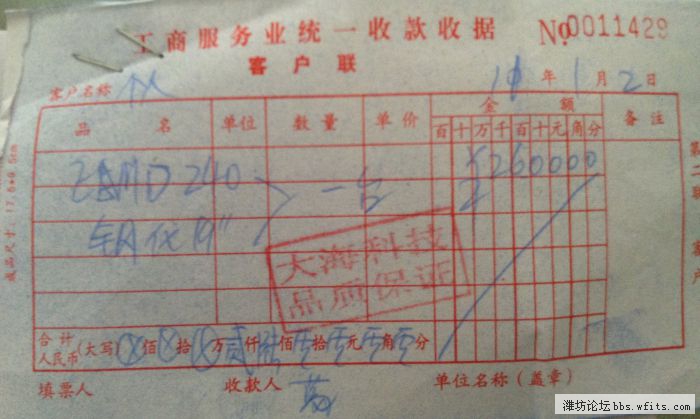 工商服务业统一收款收据 No.0011429
客户联
客户名称 个人 年 1 月 2 日
品名 单位 数量 单价 金额 备注
百 十 万 千 百 十 元 角 分
AMD 240 一台 ¥260000
19"
大海科技
品质保证
合计人民币(大写) ⊗佰⊗拾⊗万贰仟陆佰零拾零元零角零分
填票人 收款人 单位名称(盖章)
成品尺寸:17.5×9.5cm
第二联 客户
潍坊论坛 bbs.wfits.com